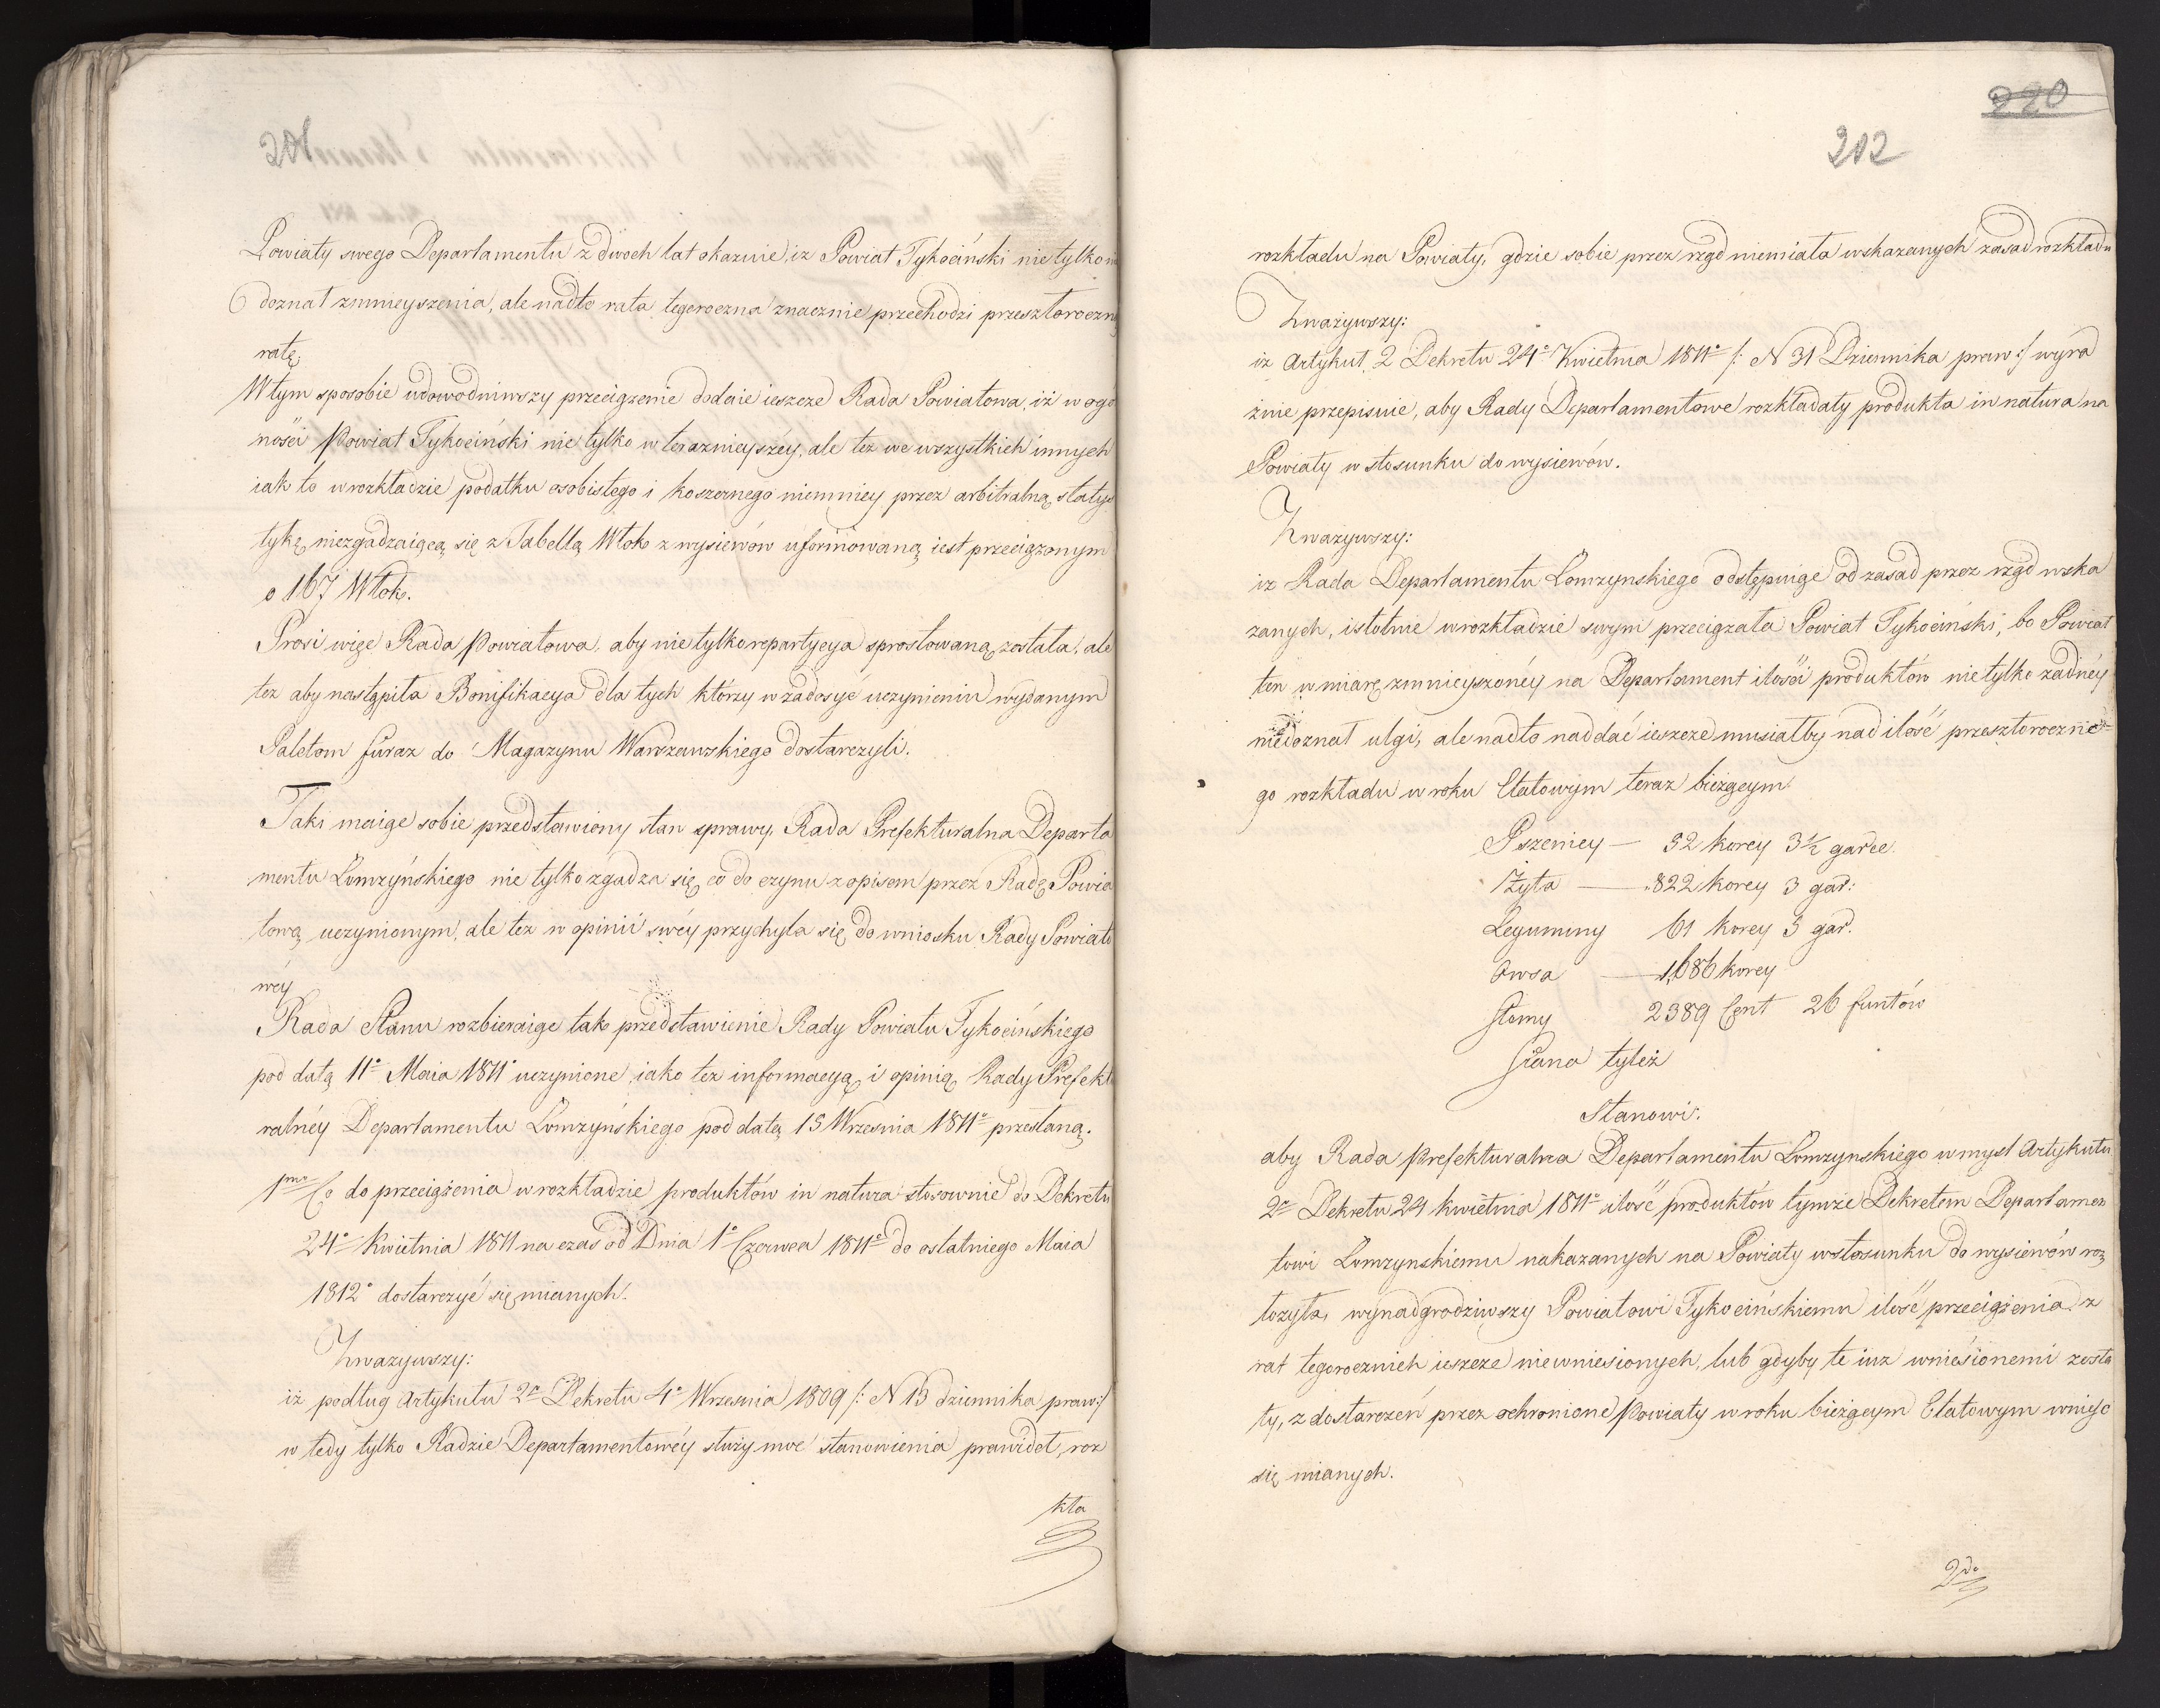 201
Powiaty swego Departamentu z dwoch lat okazuie, iz Powiat Tykociński nietylko nie
doznał zmnieyszenia, ale nadto rata tegoroczna znacznie przechodzi przeszłoroczną
ratę.
W tym sposobie udowodniwszy przeciążenie dodaie ieszcze Rada Powiatowa, iż w ogó
ności Powiat Tykociński nie tylko w teraznieyszéy, ale tez we wszystkich innych
iak to w rozkładzie podatku osobistego i koszernego niemniey przez arbitralną statys
tykę, niezgadzaiącą się z Tabellą Włok z wysiewów uformowaną iest przeciązonym
o 167 Włok.
Prosi więc Rada Powiatowa, aby nie tylko repartycya sprostowaną została, ale
tez aby nastąpiła Bonifikacya dla tych którzy w zadosyć uczynieniu wydanym
Paletom furaz do Magazynu Warszawskiego dostarczyli.
Taki maiąc sobie przedstawiony stan sprawy, Rada Prefekturalna Departa
mentu Łomzyńskiego nie tylko zgadza się co do czynu z opisem przez Radę Powia
tową uczynionym, ale tez w opinii swéy przychyla się do wniosku Rady Powiato
wéy
Rada Stanu rozbieraiąc tak przedstawienie Rady Powiatu Tykocińskiego
pod datą 11º Maia 1811º uczynione, iako tez informacyą i opinią Rady Prefektu
ralnéy Departamentu Łomzyńskiego pod datą 15 Wrzesnia 1811º przesłaną.
1mo Co do przeciążenia w rozkładzie produktów in natura stosownie do Dekretu
24º Kwietnia 1811 na czas od Dnia 1º Czerwca 1811º do ostatniego Maia
1812º dostarczyć się mianych.
Zwazywszy:
iż podług Artykułu 2º Dekretu 4º Wrzesnia 1809 /: N 13 dziennika praw :/
w tedy tylko Radzie Departamentowéy służy moc stanowienia prawideł, roz
kła
220
202
rozkładu na Powiaty, gdzie sobie przez rząd niemiała wskazanych zasad rozkładu
Zważywszy:
iz Artykuł 2 Dekretu 24º Kwietnia 1811º /: N 31 Dziennika praw :/ wyra
źnie przepisuie, aby Rady Departamentowe rozkładały produkta in natura na
Powiaty w stosunku do wysiewów.
Zwazywszy:
iz Rada Departamentu Łomzynskiego odstępuiąc od zasad przez rząd wska
zanych, istotnie w rozkładzie swym przeciązała Powiat Tykociński, bo Powiat
ten w miarę zmnieyszonéy na Departament ilości produktów nie tylko zadnéy
niedoznał ulgi, ale nadto naddać ieszcze musiałby nad ilość przeszłoroczne-
go rozkładu w roku Etatowym teraz bieżącym.
Pszenicy — 32 korcy 3½ garce.
Żyta — 822 korcy 3 gar:
Leguminy 61 korcy 3 gar.
Owsa — 1,686 korcy
Słomy 2389 Cent 26 funtów
Siana tyleż
Stanowi.
aby Rada Prefekturalna Departamentu Łomzynskiego w mysl Artykułu
2º Dekretu 24 Kwietnia 1811º ilość produktów tymze Dekretem Departamen
towi Łomzynskiemu nakazanych na Powiaty w stosunku do wysiewów roz
łozyła, wynadgrodziwszy Powiatowi Tykocińskiemu ilość przeciążenia z
rat tegorocznich ieszcze niewniesionych, lub gdyby te iuz wniesionemi zosta
ły, z dostarczeń przez ochronione Powiaty w roku bieżącym Etatowym wnieść
się mianych.
2do